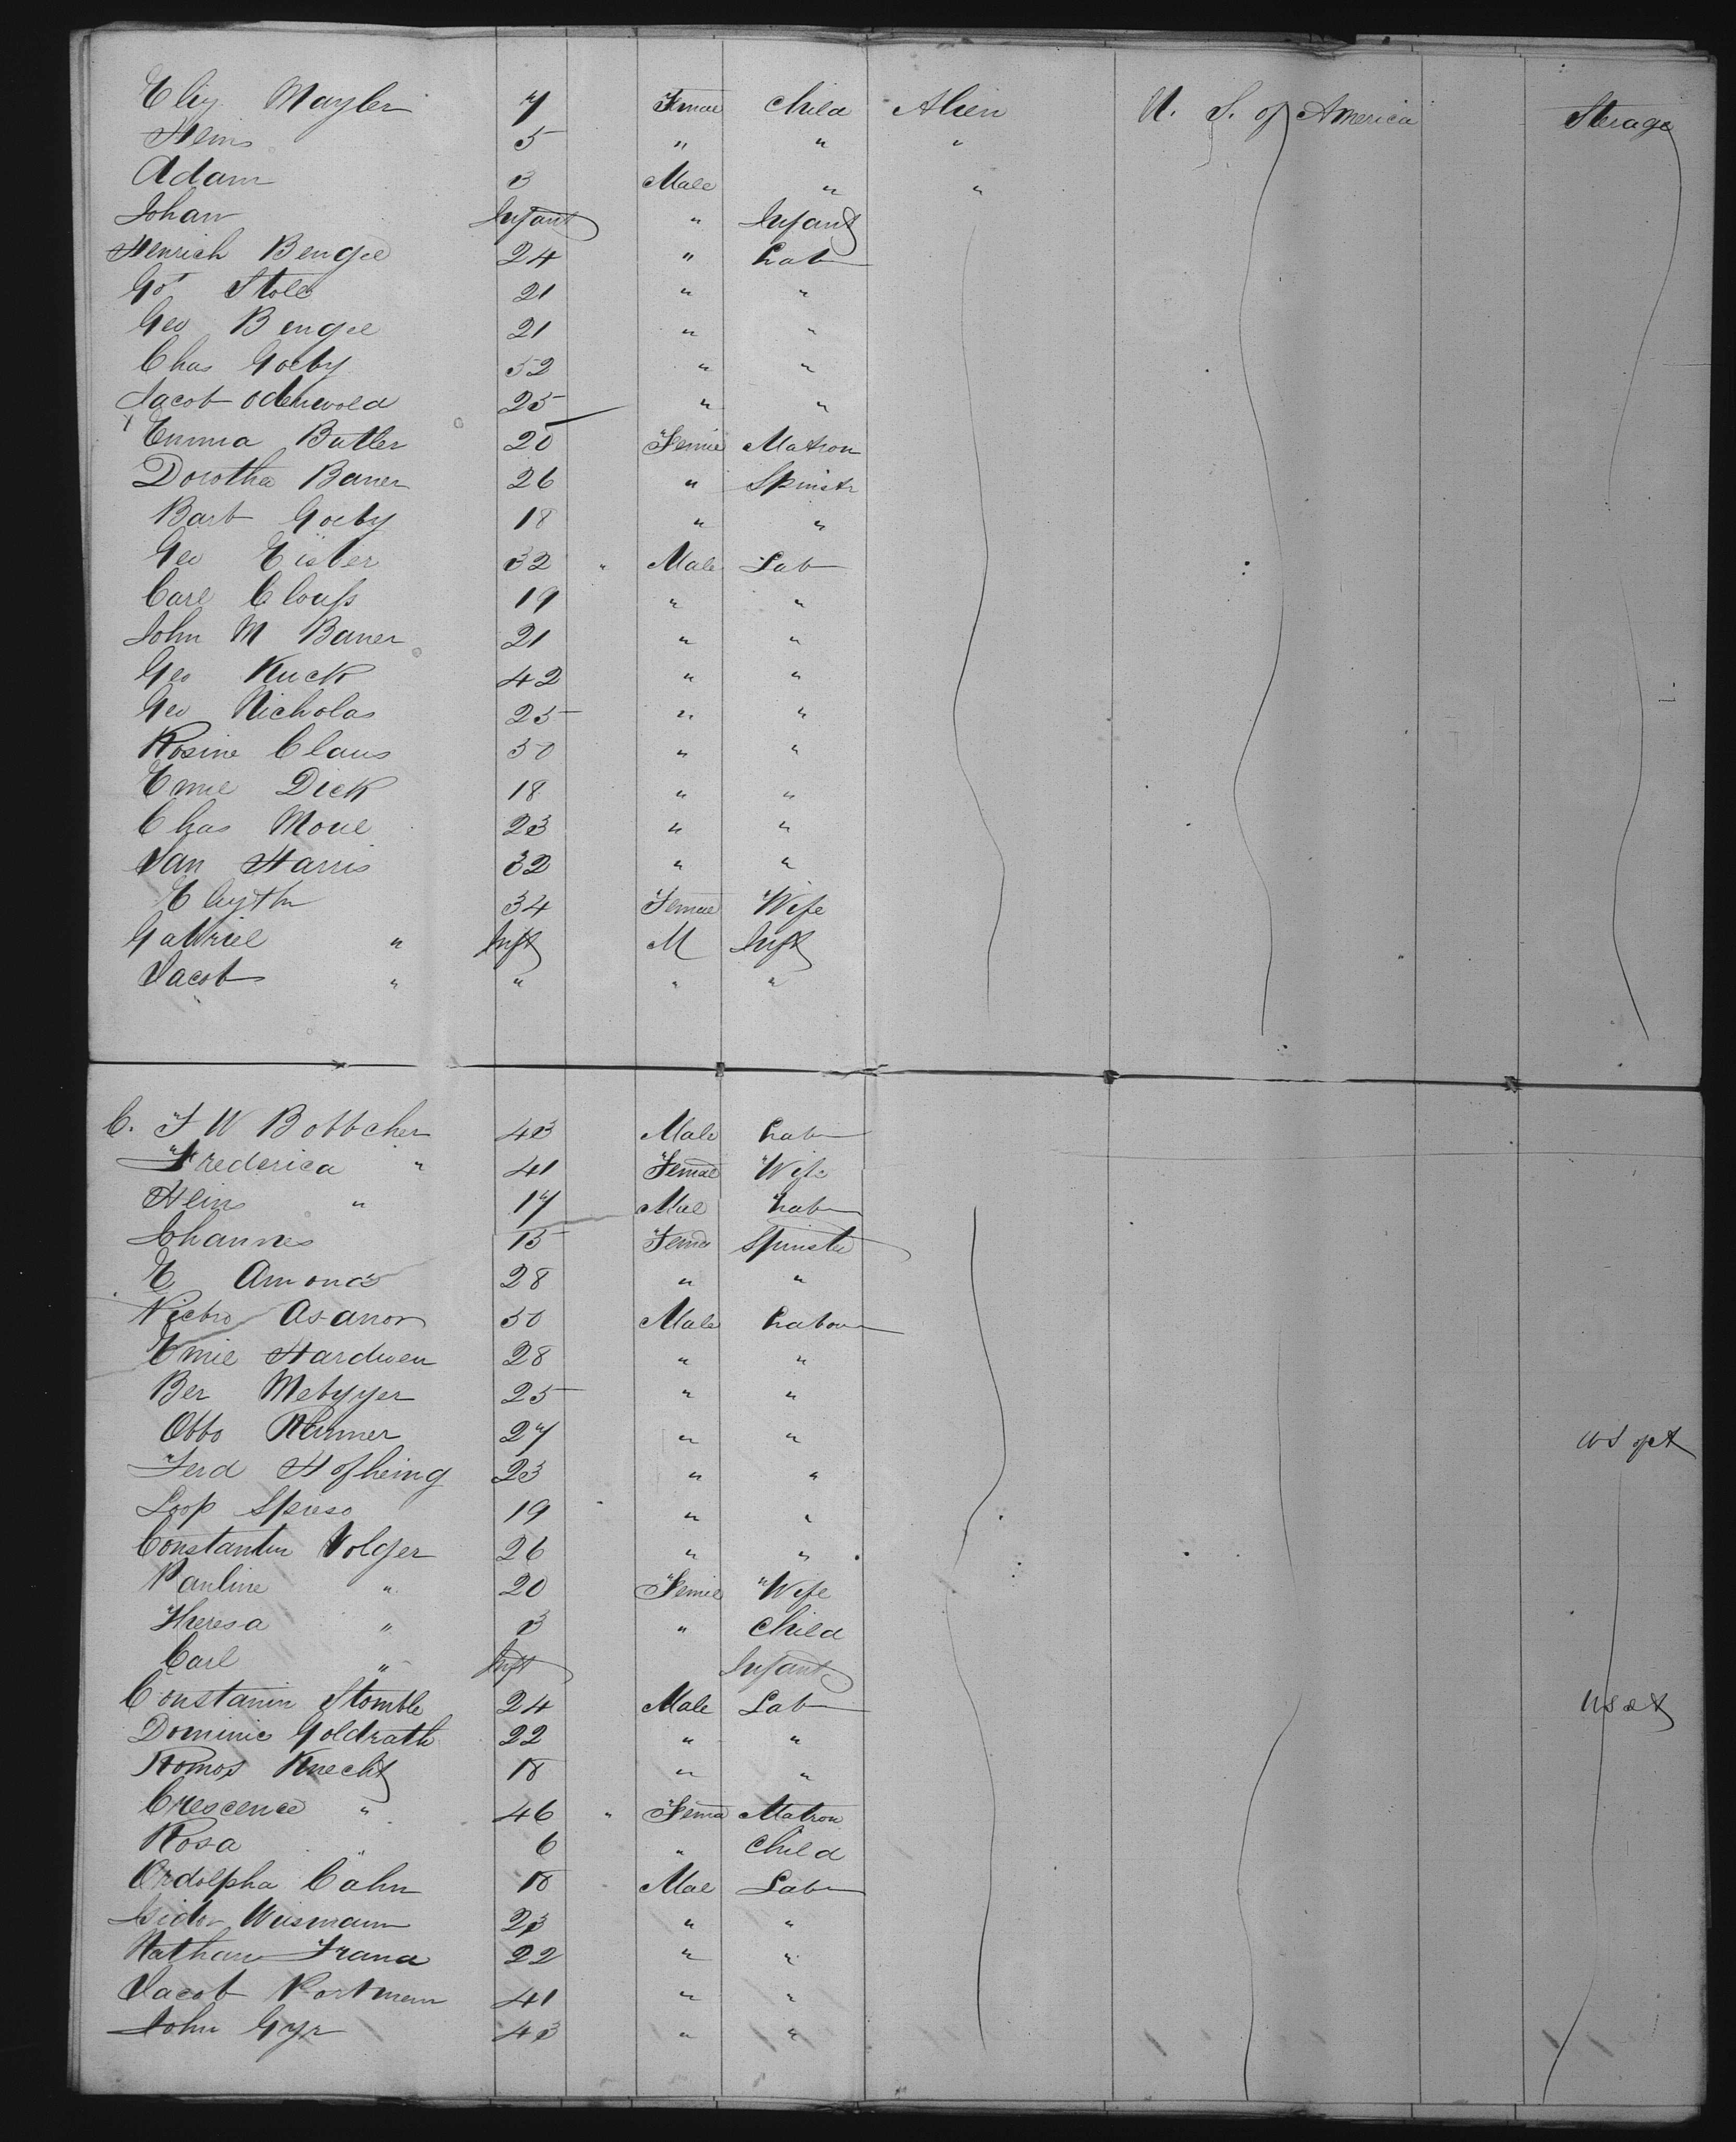 Eliz Mayler 7 Femae Child Alien U. S. of America Sterage
Heins 5 " " "
Adam 3 Male " "
Johan Infant " Infant
Henrich Bengel 24 " Lab
Go Stole 21 " "
Geo Bengel 21 " "
Chas Goeby 52 " "
Jacob Odenwold 25 " "
Emma Butler 20 Femie Matron
Dorothea Baner 26 " Spinstr
Barb Goeby 18 " "
Geo Eisler 32 " Male Lab
Carl Clouss 19 " "
John M Baner 21 " "
Geo Kuck 42 " "
Geo Nicholas 25 " "
Rosine Claus 30 " "
Emil Dick 18 " "
Chas Moul 23 " "
Jan Harris 32 " "
Elizth 34 Femae Wife
Gabriel " Inft M Inft
Jacob " " " "
C. F W Bottcher 43 Male Lab
Frederica " 41 Femae Wife
Heins " 17 Mal Lab
Johannes 15 Fema Spinster
E Amond 28 " "
Asanor 30 Male Labour
Emil Hardwen 28 " "
Ber Metzyer 25 " "
Otto Hamner 27 " " US of A
Ferd Hofheing 23 " "
Loop Spreso 19 " "
Constantin Volger 26 " "
Pauline " 20 Femie Wife
Theresa " 3 " Child
Carl " Inft Infant
Constanin Stomble 24 Male Lab
Dominic Goldrath 22 " "
Romos Knecht 18 " "
Crescence " 46 " Fema Matron
Rosa " 6 " Child
Ordolpha Cahn 18 Mal Lab
Isidor Weismann 23 " "
Nathan Frana 22 " "
Jacob Portmenn 41 " "
John Gyr 43 " "